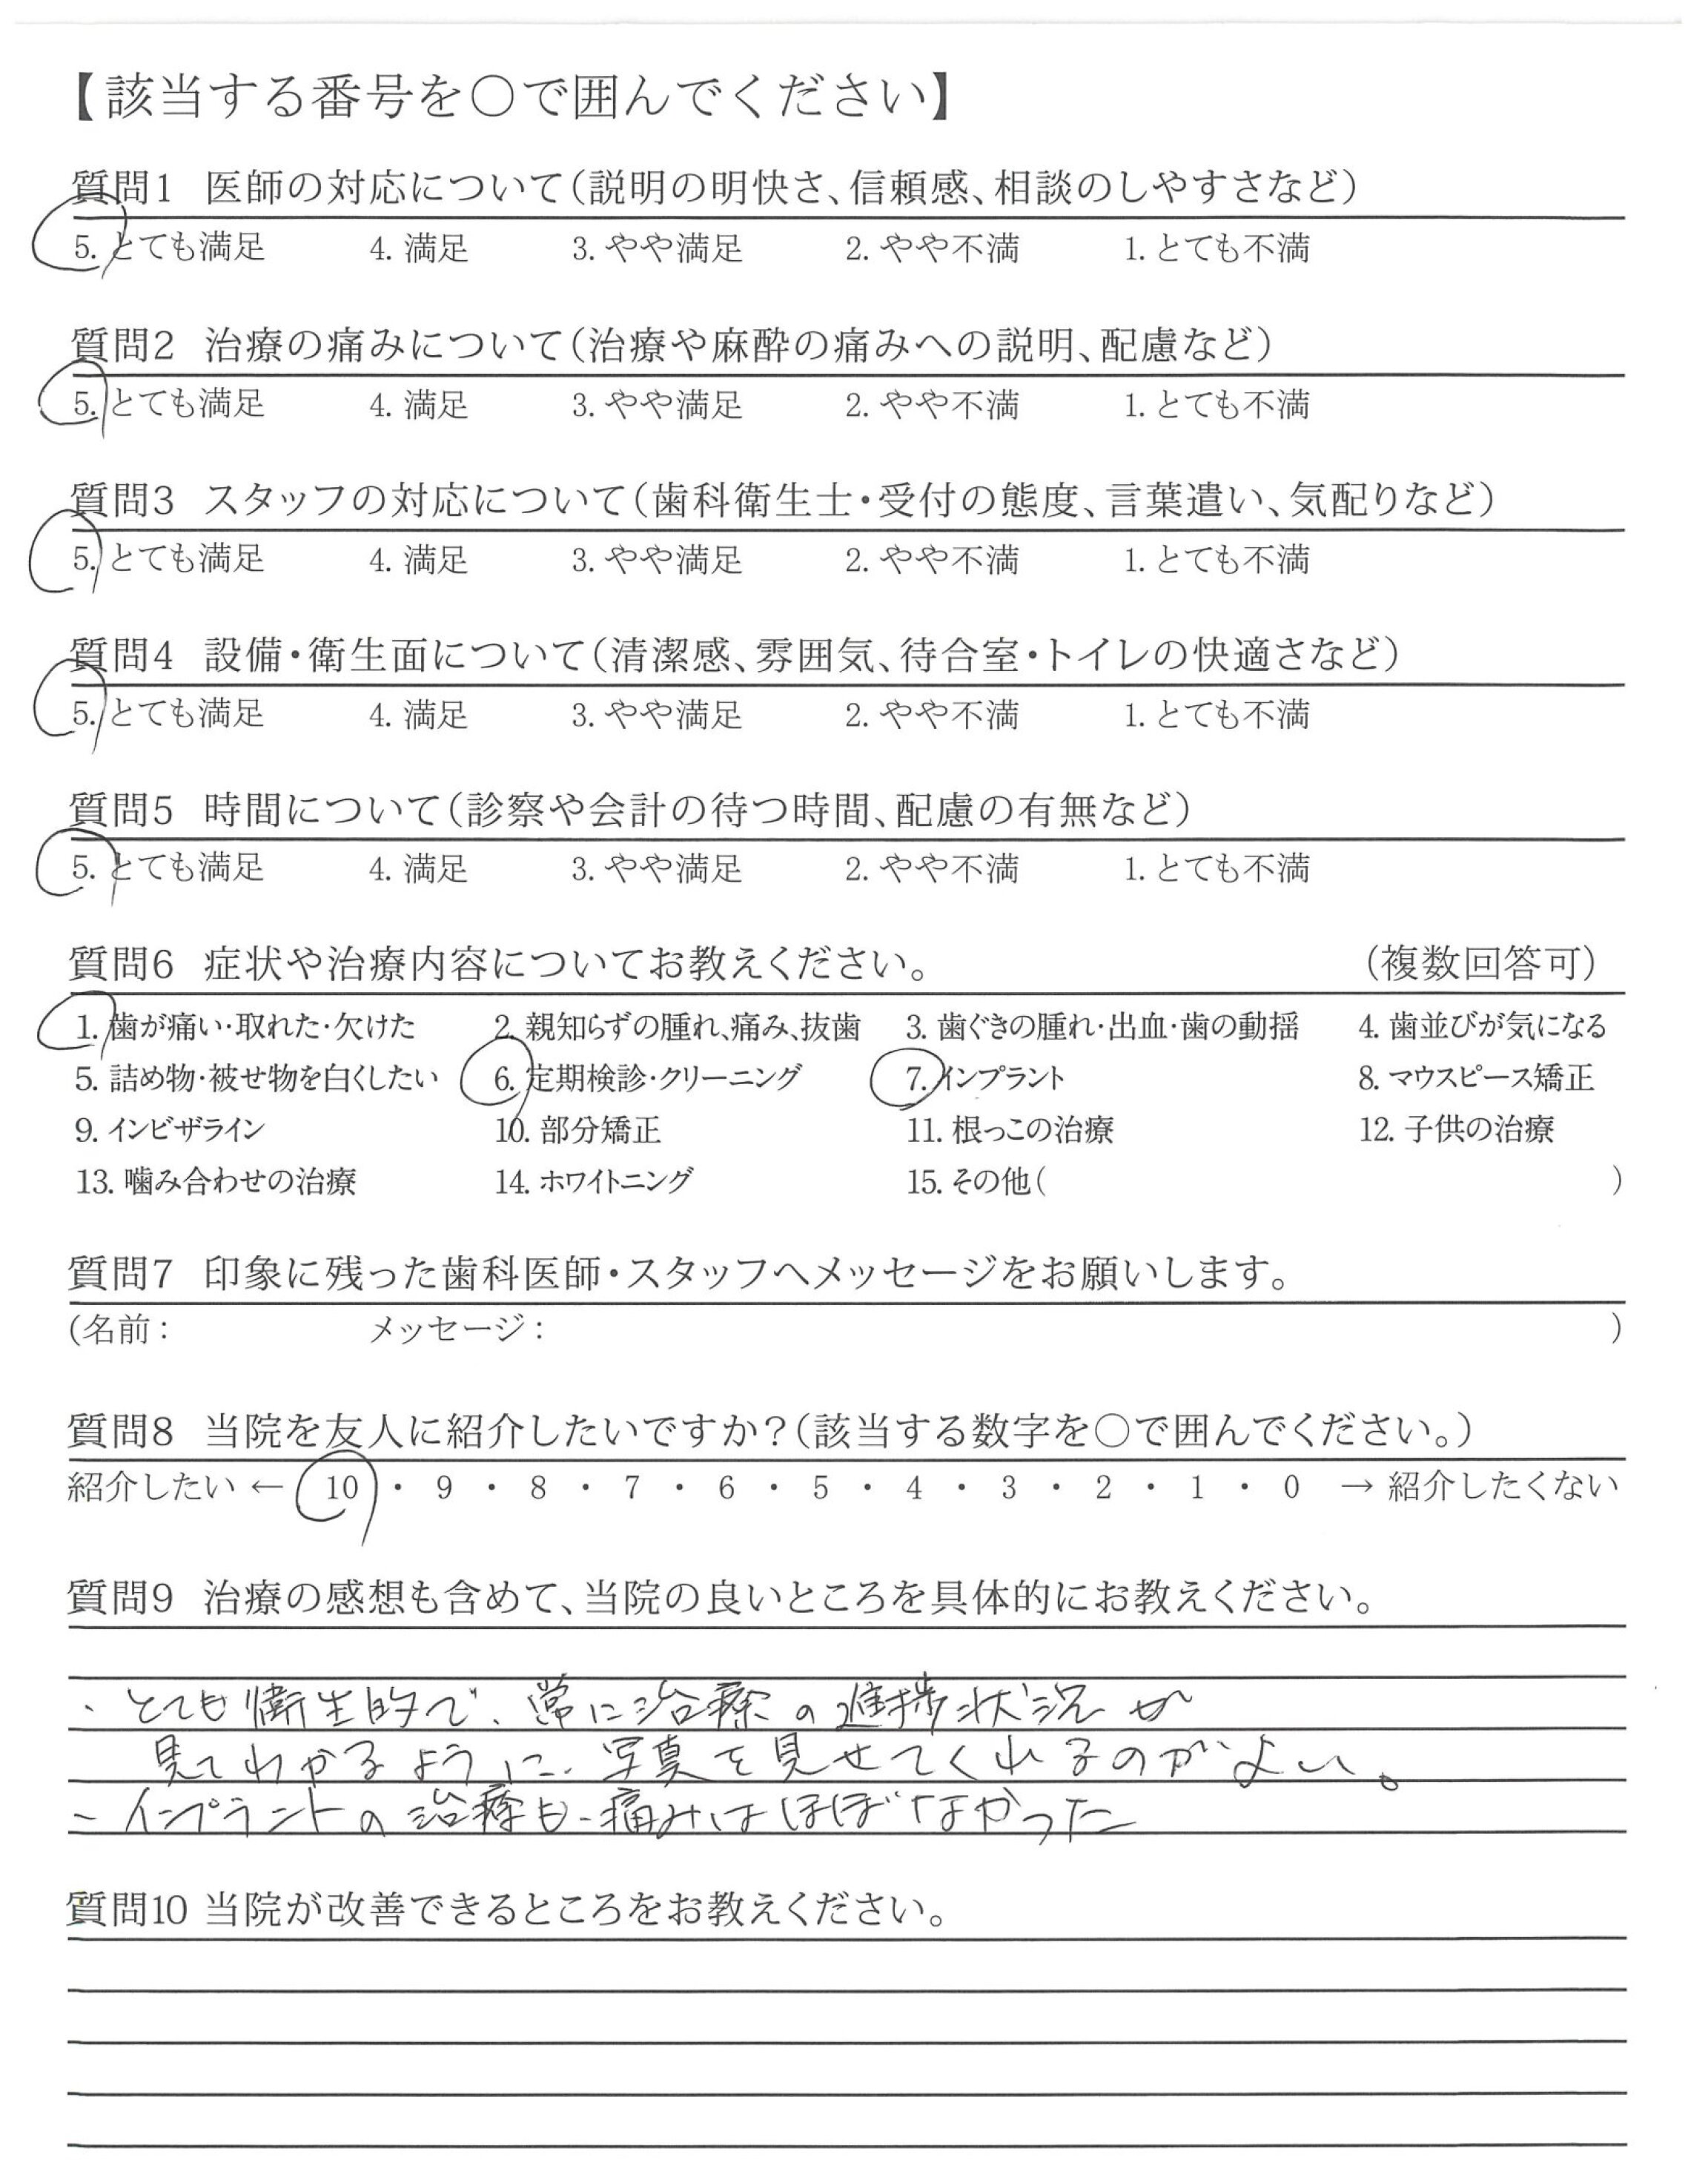 【該当する番号を○で囲んでください】
質問1 医師の対応について(説明の明快さ、信頼感、相談のしやすさなど)
5. とても満足 4. 満足 3. やや満足 2. やや不満 1. とても不満
質問2 治療の痛みについて(治療や麻酔の痛みへの説明、配慮など)
5. とても満足 4. 満足 3. やや満足 2. やや不満 1. とても不満
質問3 スタッフの対応について(歯科衛生士・受付の態度、言葉遣い、気配りなど)
5. とても満足 4. 満足 3. やや満足 2. やや不満 1. とても不満
質問4 設備・衛生面について(清潔感、雰囲気、待合室・トイレの快適さなど)
5. とても満足 4. 満足 3. やや満足 2. やや不満 1. とても不満
質問5 時間について(診察や会計の待つ時間、配慮の有無など)
5. とても満足 4. 満足 3. やや満足 2. やや不満 1. とても不満
質問6 症状や治療内容についてお教えください。 (複数回答可)
1. 歯が痛い・取れた・欠けた 2. 親知らずの腫れ、痛み、抜歯 3. 歯ぐきの腫れ・出血・歯の動揺 4. 歯並びが気になる
5. 詰め物・被せ物を白くしたい 6. 定期検診・クリーニング 7. インプラント 8. マウスピース矯正
9. インビザライン 10. 部分矯正 11. 根っこの治療 12. 子供の治療
13. 噛み合わせの治療 14. ホワイトニング 15. その他( )
質問7 印象に残った歯科医師・スタッフへメッセージをお願いします。
(名前: メッセージ: )
質問8 当院を友人に紹介したいですか?(該当する数字を○で囲んでください。)
紹介したい ← 10 ・ 9 ・ 8 ・ 7 ・ 6 ・ 5 ・ 4 ・ 3 ・ 2 ・ 1 ・ 0 → 紹介したくない
質問9 治療の感想も含めて、当院の良いところを具体的にお教えください。
・とても衛生的で、常に治療の進捗状況が
見てわかるように、写真を見せてくれるのがよい。
・インプラントの治療も、痛みはほぼなかった
質問10 当院が改善できるところをお教えください。